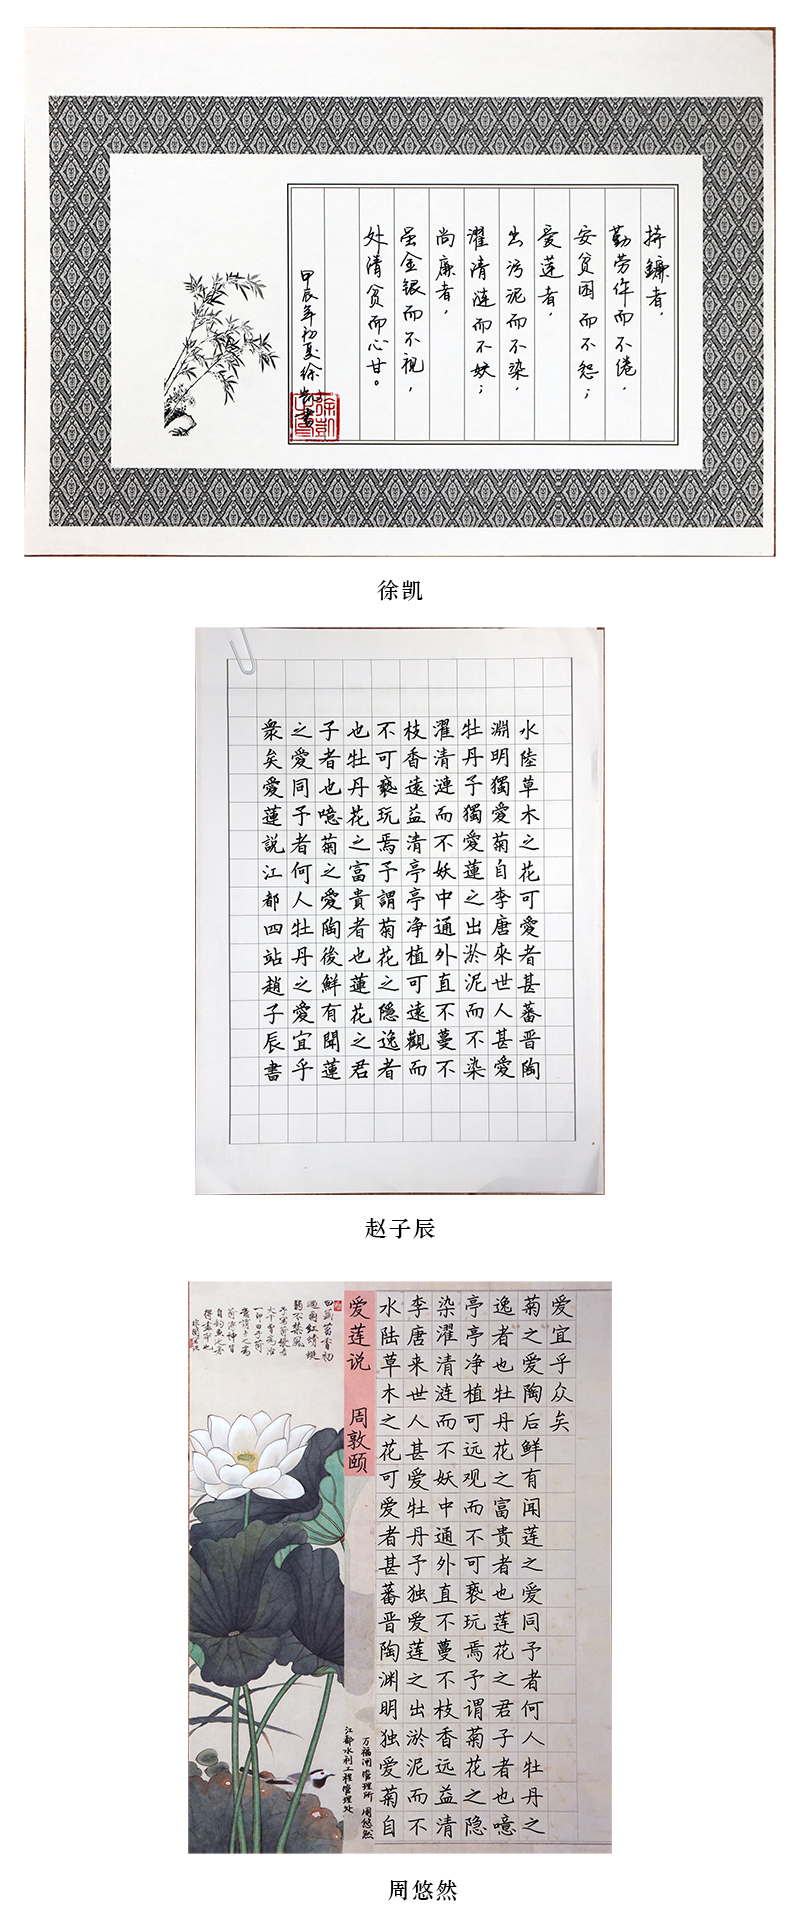 持鐮者，
勤劳作而不倦，
安贫困而不怨；
爱莲者，
出污泥而不染，
濯清涟而不妖；
尚廉者，
虽金银而不视，
处清贫而心甘。
甲辰年初夏徐凯书
徐凯
水陸草木之花可愛者甚蕃晋陶
淵明獨愛菊自李唐來世人甚愛
牡丹子獨愛蓮之出淤泥而不染
濯清漣而不妖中通外直不蔓不
枝香遠益清亭亭净植可遠觀而
不可褻玩焉予謂菊花之隱逸者
也牡丹花之富貴者也蓮花之君
子者也噫菊之愛陶後鮮有聞蓮
之愛同予者何人牡丹之愛宜乎
衆矣愛蓮說江都四站趙子辰書
赵子辰
爱莲说 周敦颐
水陆草木之花可爱者甚蕃晋陶渊明独爱菊自
李唐来世人甚爱牡丹予独爱莲之出淤泥而不
染濯清涟而不妖中通外直不蔓不枝香远益清
亭亭净植可远观而不可亵玩焉予谓菊花之隐
逸者也牡丹花之富贵者也莲花之君子者也噫
菊之爱陶后鲜有闻莲之爱同予者何人牡丹之
爱宜乎众矣
江都水利工程管理处
万福闸管理所 周悠然
周悠然